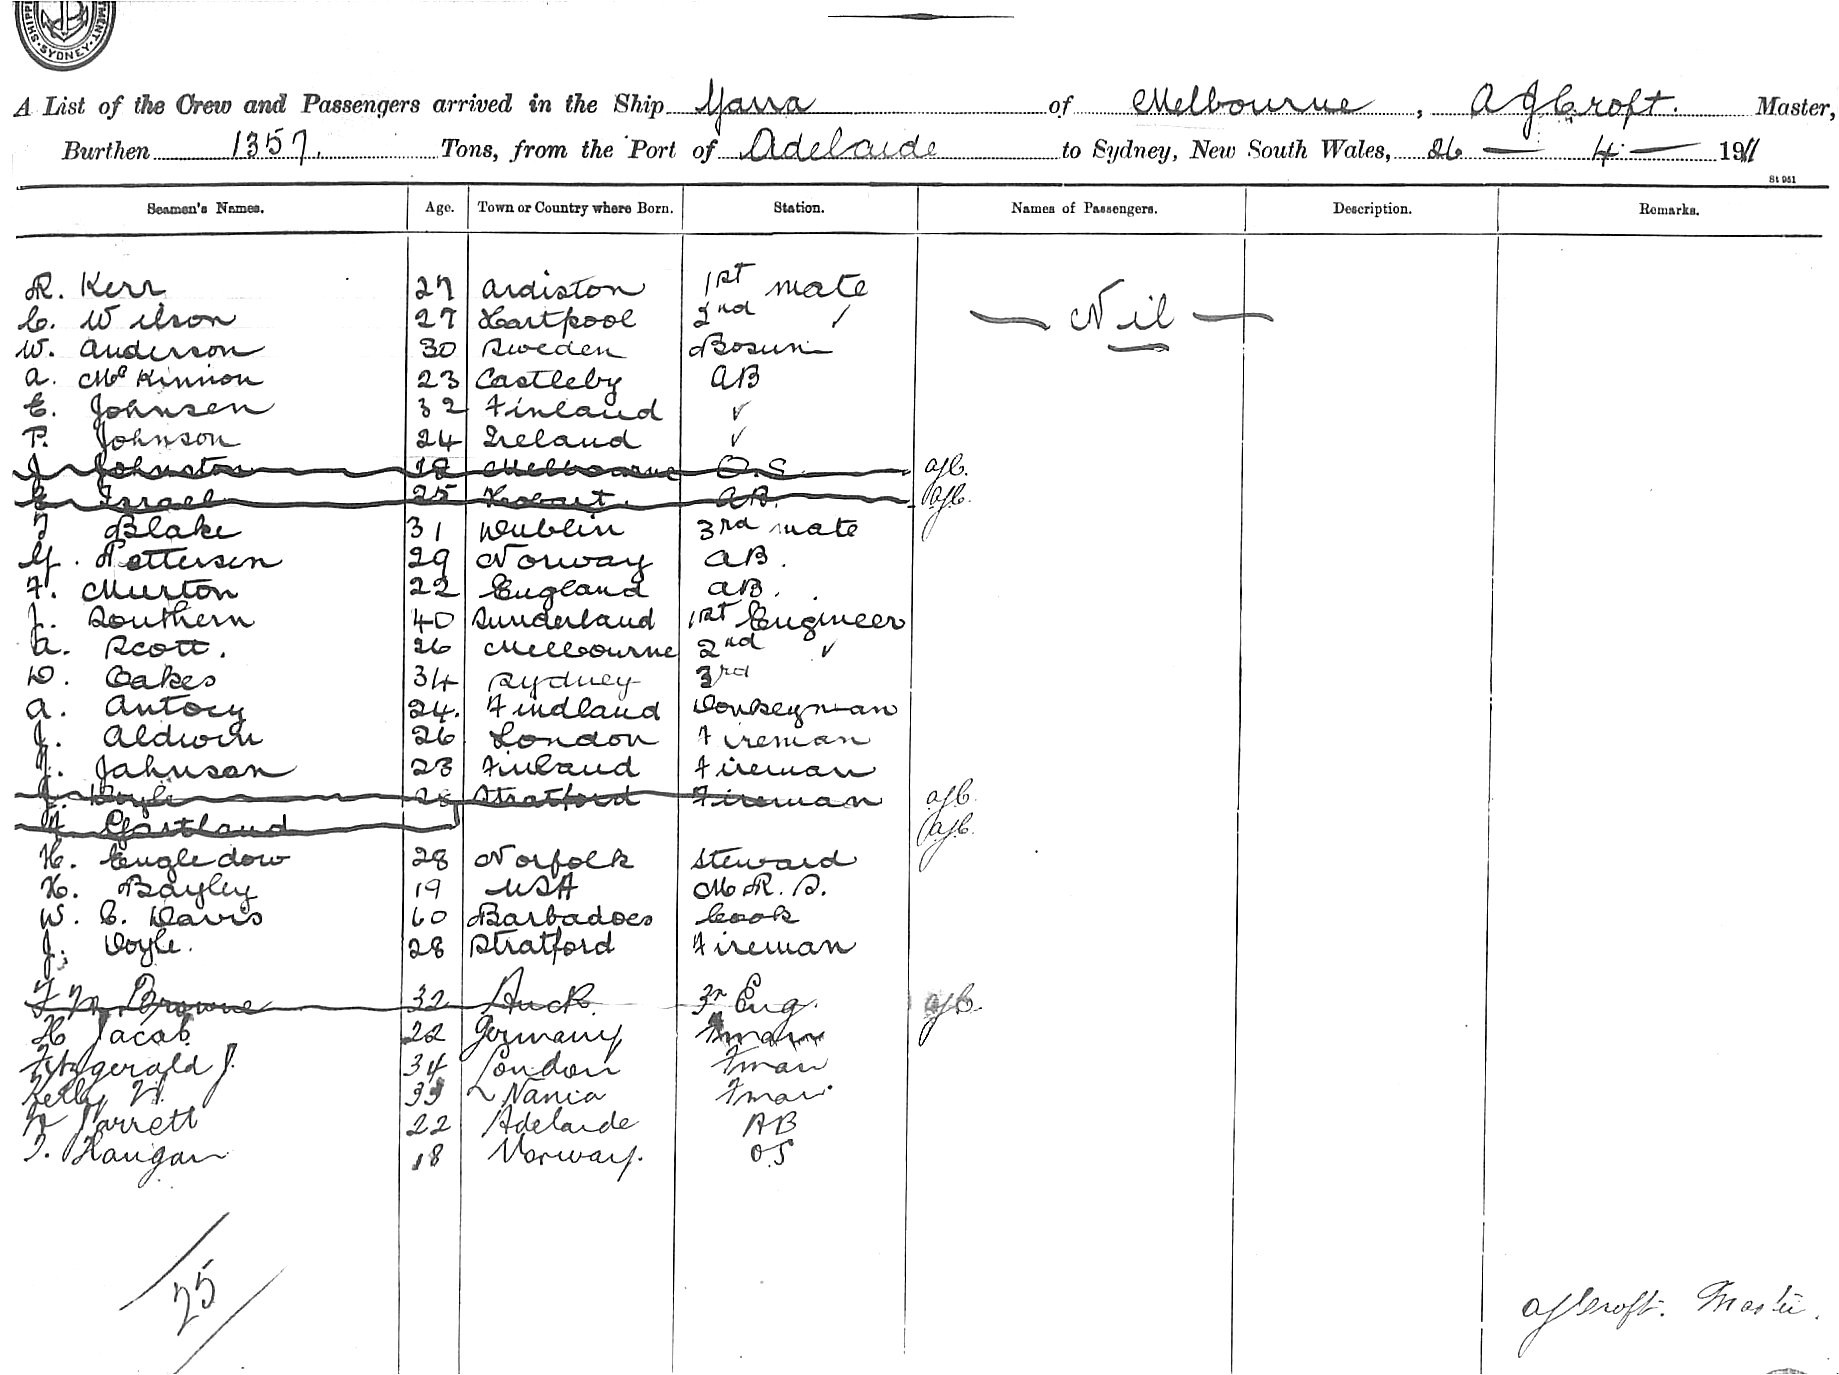 SHIPPING
SYDNEY
MENT
A List of the Crew and Passengers arrived in the Ship Yarra of Melbourne, A J Croft. Master,
Burthen 1357. Tons, from the Port of Adelaide to Sydney, New South Wales, 26 — 4 — 1911
St 981
Seamen's Names. Age. Town or Country where Born. Station. Names of Passengers. Description. Remarks.
R. Kerr 27 Ardiston 1st mate
C. Wilson 27 Hartpool 2nd ✓ — Nil —
W. Anderson 30 Sweden Bosun
A. McKinnon 23 Castleby AB
E. Johnsen 32 Finland ✓
P. Johnson 24 Ireland ✓
J Johnston 18 Melbourne O.S. AJC.
E Israel 25 Hobart. AB. AJC.
T Blake 31 Dublin 3rd mate
Y. Petterson 29 Norway AB.
F. Murton 22 England AB.
J. Southern 40 Sunderland 1st Engineer
A. Scott. 26 Melbourne 2nd ✓
D. Oakes 34 Sydney 3rd
A. Antocy 24. Findland Donkeyman
J. Aldwin 26 London Fireman
J. Johnson 23 Finland Fireman
J. Doyle 28 Stratford Fireman AJC
Gartland AJC.
H. Engledow 28 Norfolk Steward
H. Bayley 19 USA M.R.S.
W. C. Davis 60 Barbadoes Cook
J. Doyle. 28 Stratford Fireman
Browne 32 Auck. 3r Eng. AJC.
H Jacob 22 Germany Fman
Fitzgerald J. 34 London Fman
Kelly W. 33 Nania Fman
Parrett 22 Adelaide AB
T. Haugan 18 Norway. OS
25
AJCroft. Master.